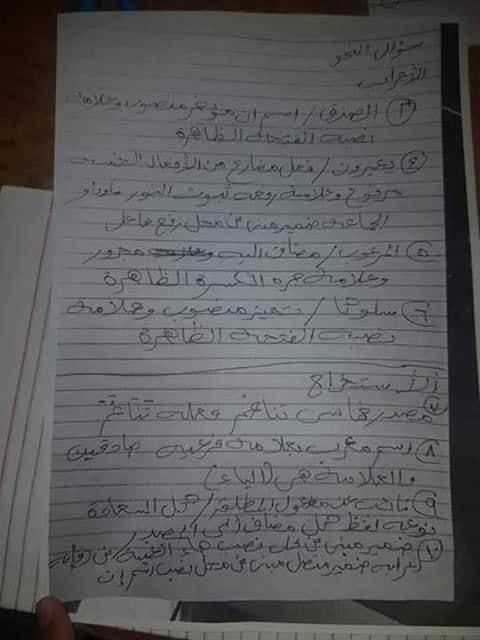 سؤال النحو
الإعراب
٣ الصدق / اسم إن مؤخر منصوب وعلامة
نصبه الفتحة الظاهرة
٤ يغيرون / فعل مضارع من الأفعال الخمسة
مرفوع وعلامة رفعه ثبوت النون واو
الجماعة ضمير مبني في محل رفع فاعل
٥ المرغوب / مضاف اليه مجرور
وعلامة جره الكسرة الظاهرة
٦ سلوكا / تمييز منصوب وعلامة
نصبه الفتحة الظاهرة
الاستخراج
٧ مصدر خماسي تناغم فعله تناغم
٨ اسم معرب بعلامة فرعية صادقين
والعلامة هي (الياء)
٩ نائب عن مفعول المطلق / كل السعادة
نوعه لفظ كل مضاف الى المصدر
١٠ ضمير مبني في محل نصب هاء
اعرابه ضمير متصل مبني في محل نصب اسم إن